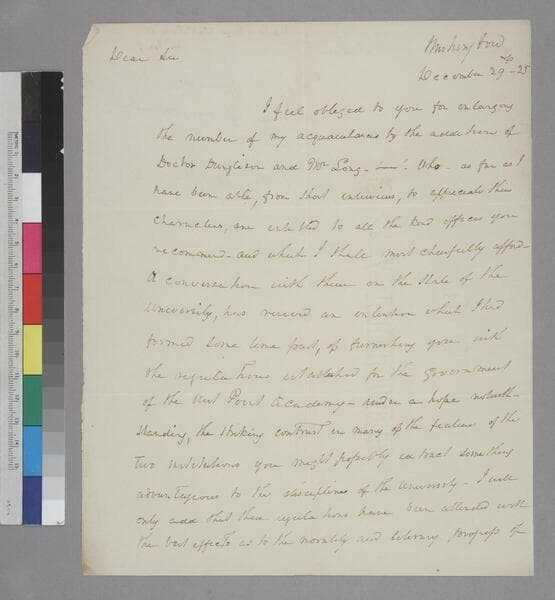 Washington
Dear Sir
December 29th - 25
I feel obliged to you for enlarging
the number of my acquaintances by the addition of
Doctor Dunglison and Mr Long - Who - as far as I
have been able, from short interviews, to appreciate their
characters, are entitled to all the kind offices you
recommend - and which I shall most cheerfully afford -
A conversation with them on the State of the
University, has revived an intention which I had
formed some time past, of furnishing you with
the regulations established for the government
of the West Point Academy - under a hope notwith-
standing, the striking contrast in many of the features of the
two institutions you might profitably extract something
advantageous to the discipline of the University - I will
only add that these regulations have been attended with
the best effects as to the morality and literary progress of